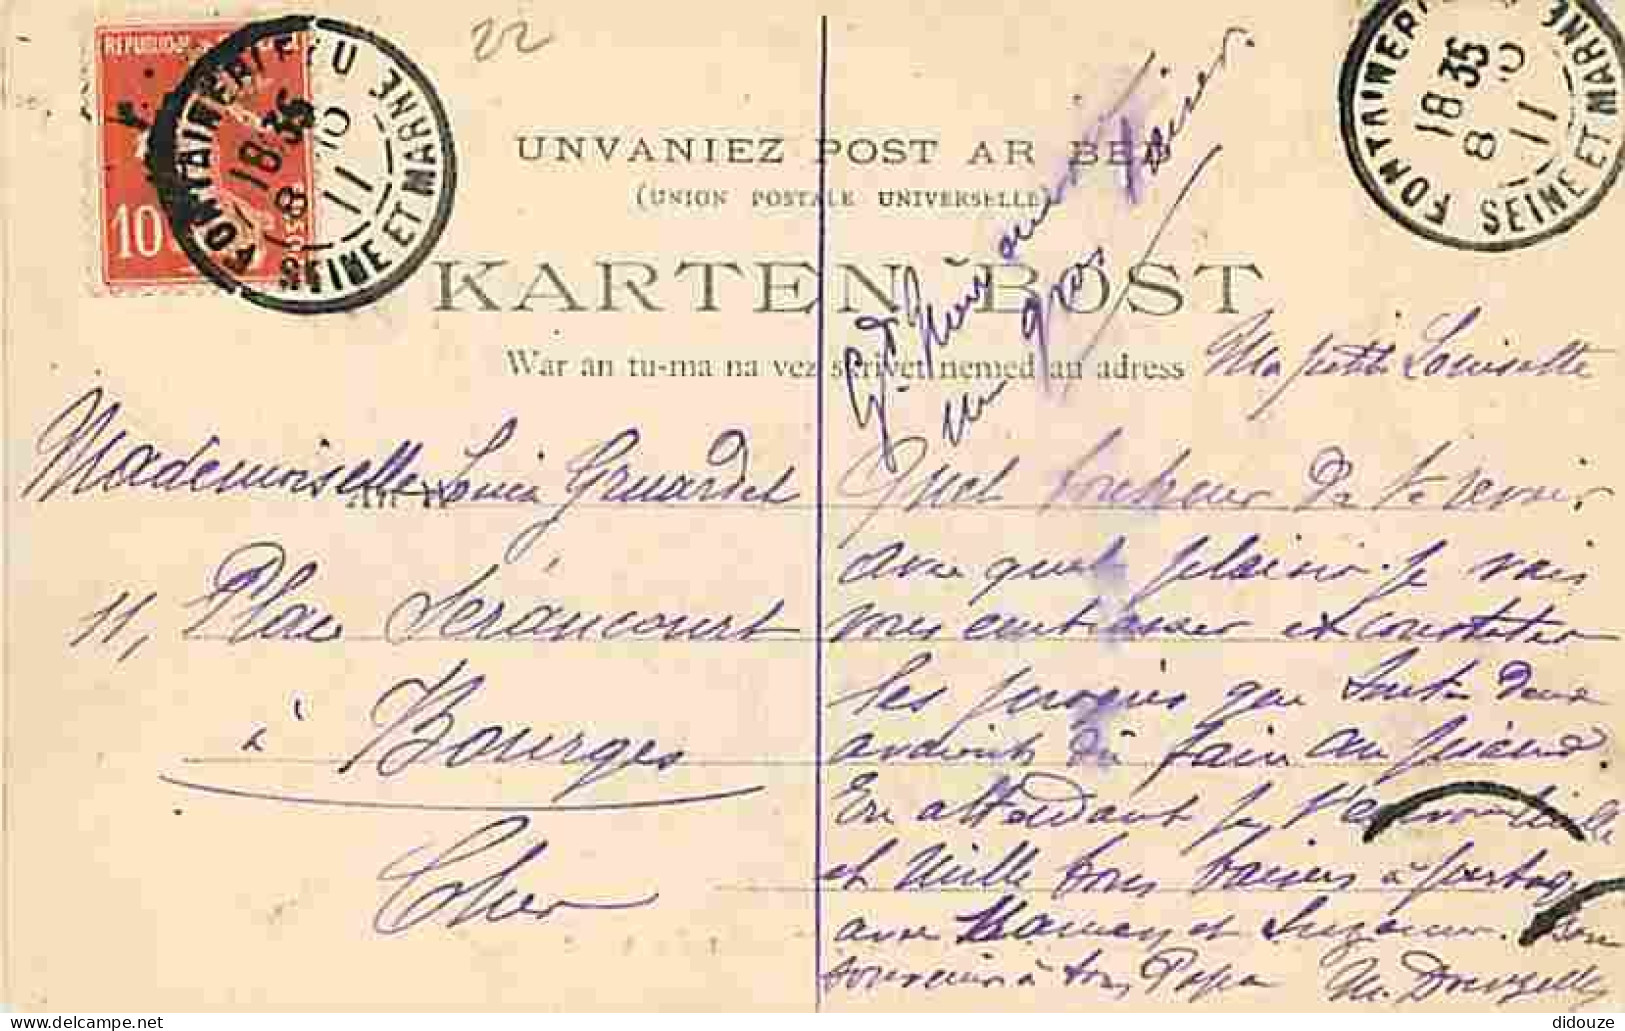 22
REPUBLIQUE
10
FONTAINEBLEAU
18 35
8
11
SEINE ET MARNE
FONTAINEBLEAU
18 35
8
11
SEINE ET MARNE
UNVANIEZ POST AR BED
(UNION POSTALE UNIVERSELLE)
KARTEN-BOST
War an tu-ma na vez skrivet nemed an adress
un gros baiser.
Ma petite Louisette
Mademoiselle Louise Gruardet
11, Place Séraucourt
à Bourges
Cher
Quel bonheur de te revoir,
avec quel plaisir je vais
vous embrasser et constater
les progrès que toutes deux
avaient dû faire au piano.
En attendant je t'envoie mille
et mille bons baisers à partager
avec Maman et Suzanne. Bon
souvenir à ton Papa M.
didouze